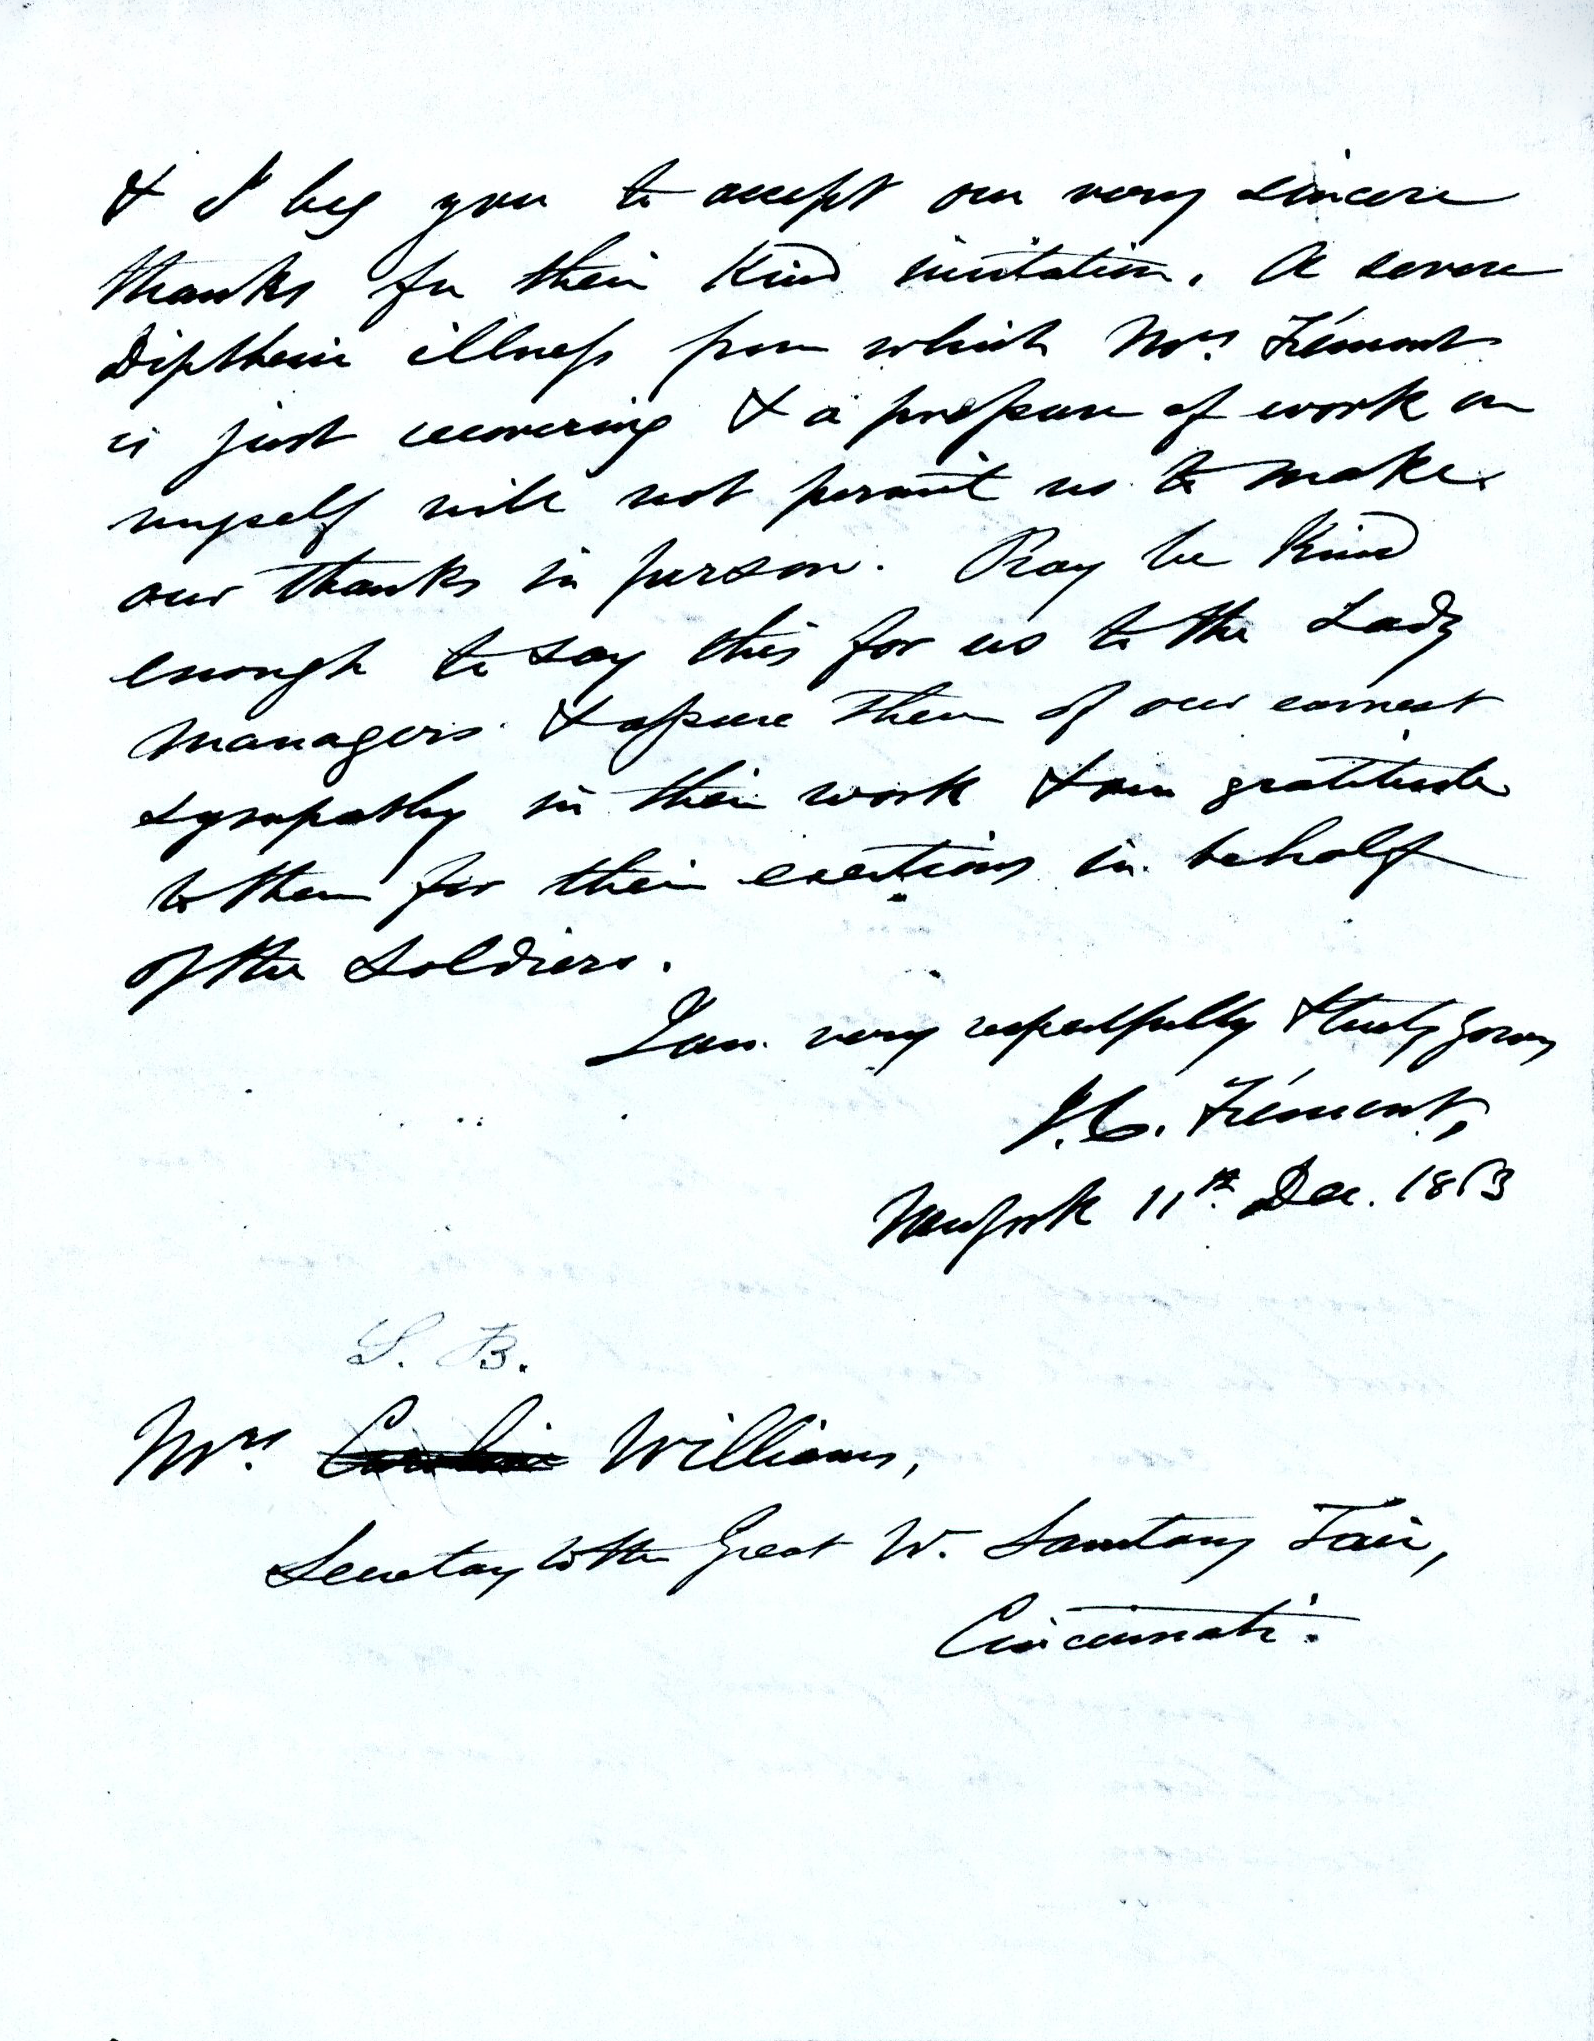 & I beg you to accept our very sincere
thanks for their kind invitation. A severe
Diptheric illness from which Mrs. Frémont
is just recovering & a pressure of work on
myself will not permit us to make
our thanks in person. Pray be kind
enough to say this for us to the Lady
Managers & assure them of our earnest
sympathy in their work & our gratitude
to them for their exertions in behalf
of the Soldiers.
I am very respectfully & truly yours,
J. C. Frémont,
New York 11th. Dec. 1863
S. B.
Mrs. Williams,
Secretary to the Great W. Sanitary Fair,
Cincinnati.